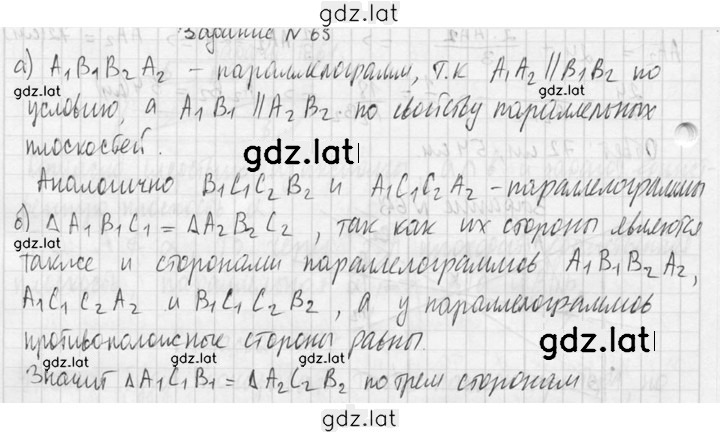 gdz.lat
Задание №65
а) A₁B₁B₂A₂ – параллелограмм, т.к A₁A₂ ∥ B₁B₂ по
gdz.lat gdz.lat
условию, а A₁B₁ ∥ A₂B₂ по свойству параллельных
плоскостей.
gdz.lat
gdz.lat
Аналогично B₁C₁C₂B₂ и A₁C₁C₂A₂ – параллелограммы
б) ΔA₁B₁C₁ = ΔA₂B₂C₂, так как их стороны являются
gdz.lat
также и сторонами параллелограммов A₁B₁B₂A₂,
A₁C₁C₂A₂ и B₁C₁C₂B₂, а у параллелограммов
противоположные стороны равны.
gdz.lat
gdz.lat gdz.lat gdz.lat
Значит ΔA₁C₁B₁ = ΔA₂C₂B₂ по трем сторонам
gdz.lat